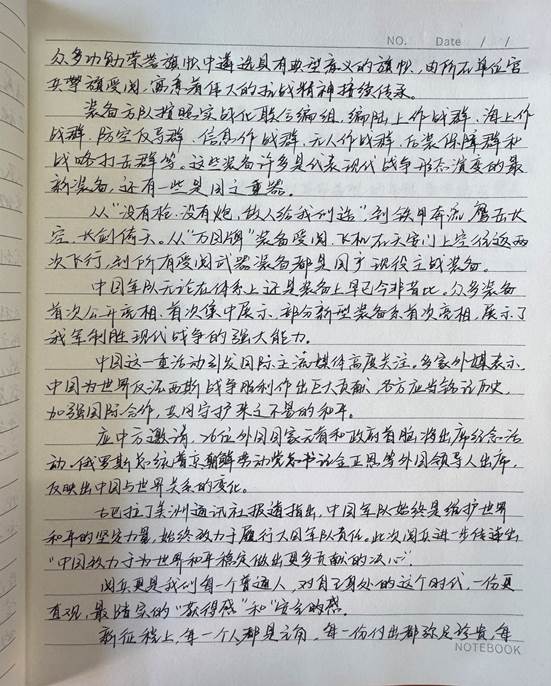 NO.    Date    /    /
众多功勋荣誉旗帜中遴选具有典型意义的旗帜,由所在单位官
兵擎旗受阅,寓意着伟大的抗战精神接续传承。
装备方队按照实战化联合编组,编陆上作战群、海上作
战群、防空反导群、信息作战群、无人作战群、后装保障群和
战略打击群等。这些装备许多是代表现代战争形态演变的最
新装备,还有一些是国之重器。
从“没有枪、没有炮,敌人给我们造”到铁甲奔流、鹰击长
空、长剑倚天。从“万国牌”装备受阅、飞机在天安门上空往返两
次飞行,到所有受阅武器装备都是国产现役主战装备。
中国军队无论在体系上还是装备上早已今非昔比。众多装备
首次公开亮相、首次集中展示,部分新型装备系首次亮相,展示了
我军制胜现代战争的强大能力。
中国这一重活动引发国际主流媒体高度关注。多家外媒表示,
中国为世界反法西斯战争胜利作出巨大贡献,各方应当铭记历史,
加强国际合作,共同守护来之不易的和平。
应中方邀请,26位外国国家元首和政府首脑将出席纪念活
动。俄罗斯总统普京、朝鲜劳动党总书记金正恩等外国领导人出席,
反映出中国与世界关系的变化。
古巴拉丁美洲通讯社报道指出,中国军队始终是维护世界
和平的坚定力量,始终致力于履行大国军队责任。此次阅兵进一步传递出
“中国致力于为世界和平稳定做出更多贡献的决心”。
阅兵更是我们每一个普通人,对自己身处的这个时代,一份更
直观、最踏实的“获得感”和“安全的感。
新征程上,每一个人都是主角,每一份付出都弥足珍贵,每
NOTEBOOK